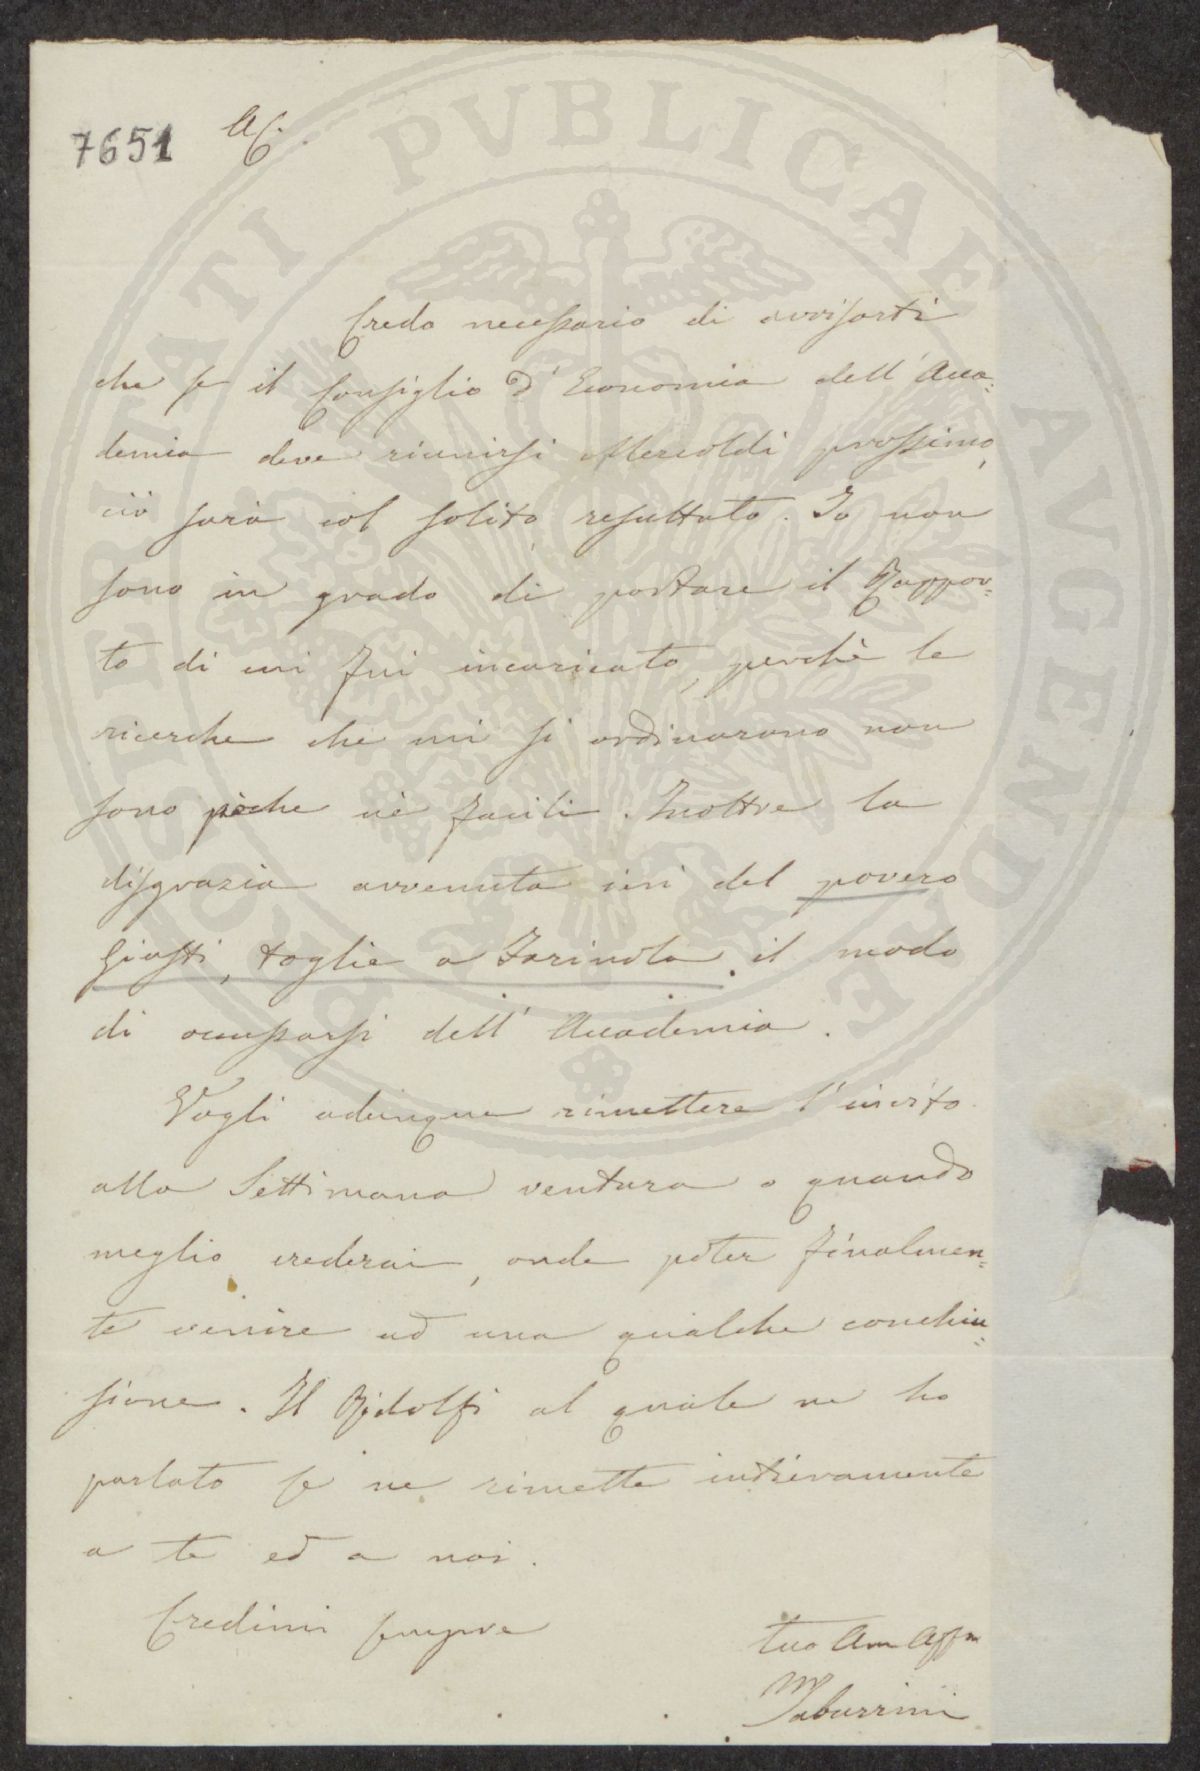 7651
AC.
Credo necessario di avvisarti
che se il Consiglio d'Economia dell'Acca=
demia deve riunirsi Mercoldì prossimo,
ciò sarà col solito resultato. Io non
sono in grado di portare il Rappor=
to di cui fui incaricato, perchè le
ricerche che mi si ordinarono non
sono pòche nè facili. Inoltre la
disgrazia avvenuta ieri del povero
Giusti, toglie a Farinola il modo
di occuparsi dell'Accademia.
Vogli adunque rimettere l'invito
alla Settimana ventura o quando
meglio crederai, onde poter finalmen=
te venire ad una qualche conchiu=
sione. Il Ridolfi al quale ne ho
parlato se ne rimette intieramente
a te ed a noi.
Credimi sempre
tuo Am Affm
M Tabarrini
PROSPERITATI PVBLICAE AVGENDAE